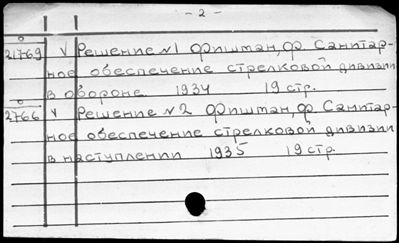 - 2 -
21769 V Решение №1 Фишман, ф. Санитар-
ное обеспечение стрелковой дивизии
в обороне 1934 19 стр.
2766 V Решение №2 Фишман, ф. Санитар-
ное обеспечение стрелковой дивизии
в наступлении 1935 19 стр.